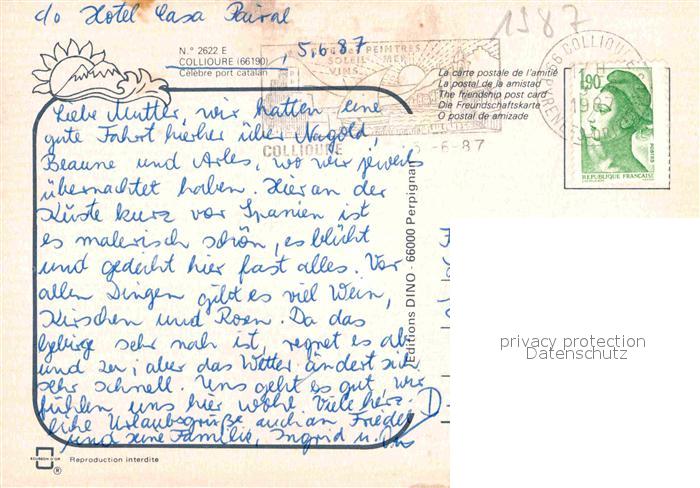 c/o Hotel Casa Pairal
1987
N.° 2622 E
COLLIOURE (66190), 5.6.87
Célèbre port catalan
PEINTRES
SOLEIL MER
VINS
COLLIOURE
-6-87
66 COLLIOURE
La carte postale de l'amitié
La postal de la amistad
The friendship post card
Die Freundschaftskarte
O postal de amizade
1,90
POSTES
REPUBLIQUE FRANÇAISE
Liebe Mutter, wir hatten eine
gute Fahrt hierher über Nagold,
Beaune und Arles, wo wir jeweils
übernachtet haben. Hier an der
Küste kurz vor Spanien ist
es malerisch schön, es blüht
und gedeiht hier fast alles. Vor
allen Dingen gibt es viel Wein,
Kirschen und Rosen. Da das
Gebirge sehr nah ist, regnet es ab
und zu; aber das Wetter ändert sich
sehr schnell. Uns geht es gut, wir
fühlen uns hier wohl. Viele herz-
liche Urlaubsgrüße auch an Frieder
und seine Familie, Ingrid u.
Editions DINO - 66000 Perpignan
D
privacy protection
Datenschutz
BOURBON D'OR
®
Reproduction interdite